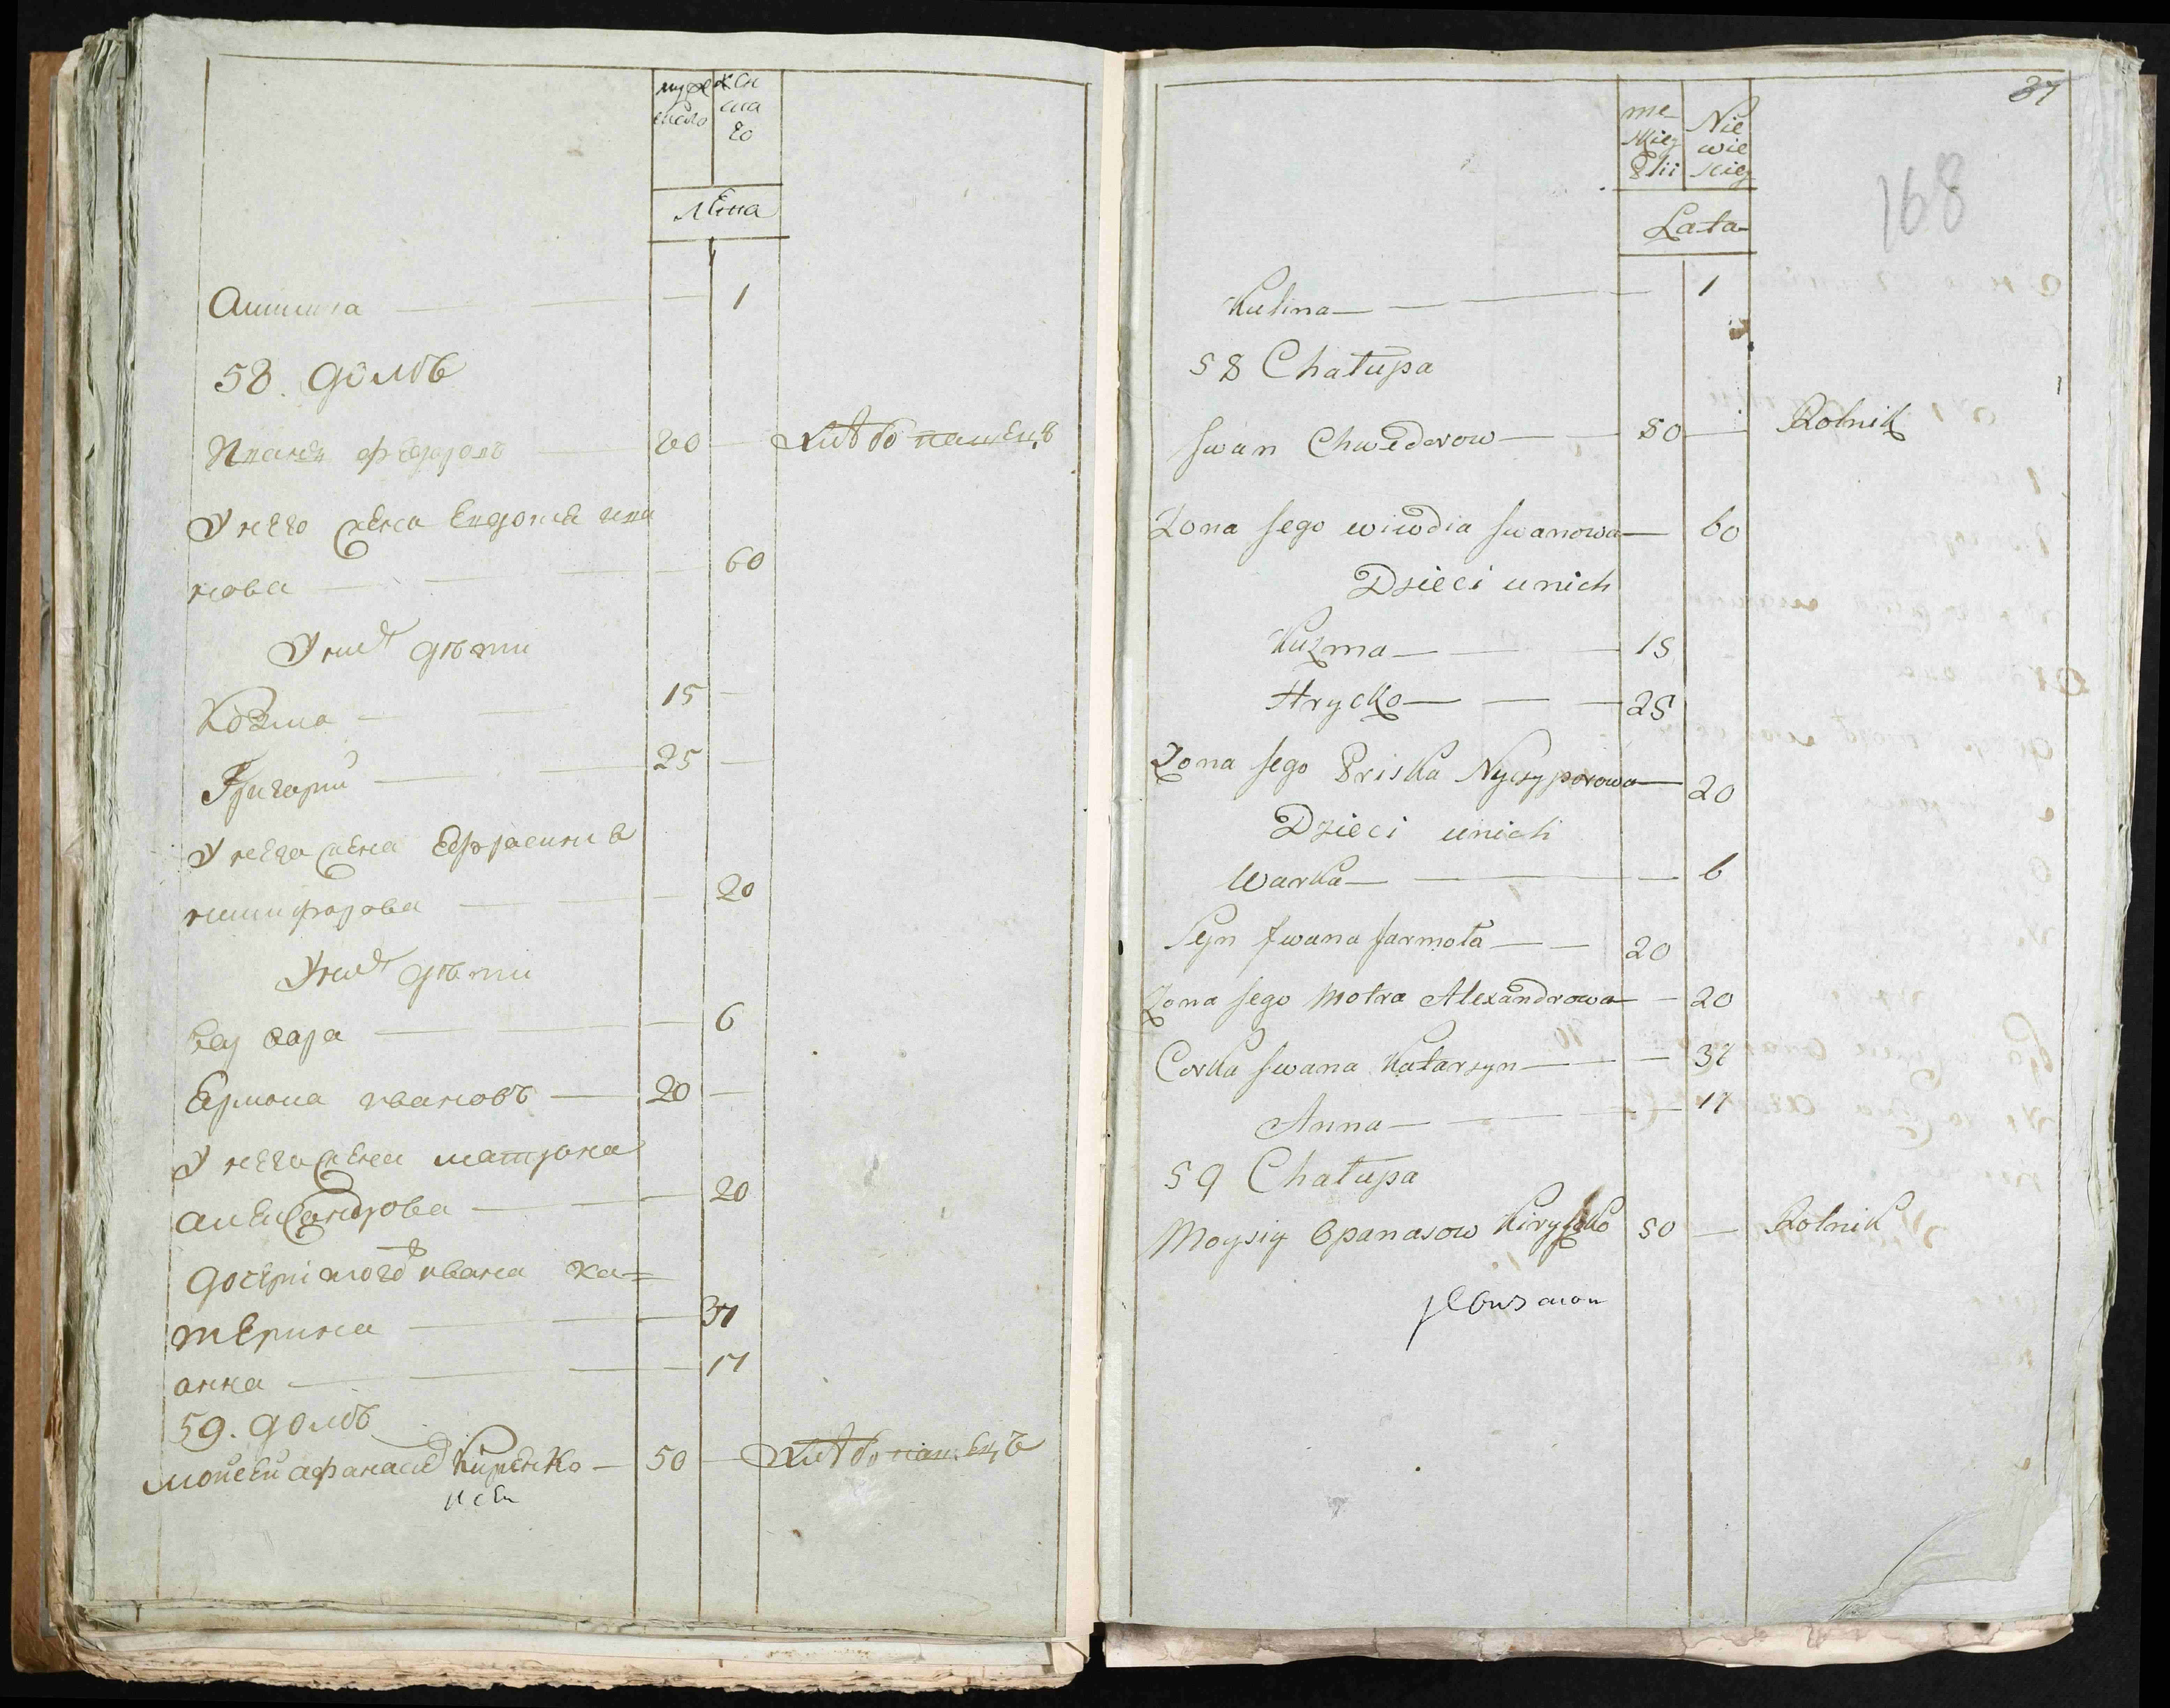 мужескаго
женска
го
лѣта
Акилина — 1
58. домъ
Иванъ Федоровъ — 60 — хлѣбопашецъ
У него жена Евдокиа Ива
нова — 60
У ниⷯ дѣти
Козма — 15 —
Григорий — 25 —
У него жена Ефросиниа
никифорова — 20
У ниⷯ дѣти
варвара — 6
Ермола ивановъ — 20 —
У него жена матрона
александрова — 20
дочери того ивана ка=
терина — 37
анна — 17
59. домъ
мойсей афанасⷷевъ Киренко — 50 — хлѣбопашецъ
37
168
me-
skiey
Płii
Nie
wie
skiey
Lata
Kulina — 1
58 Chałupa
Iwan Chwedorow — 80 — Rolnik
Zona Iego wiwdia Iwanowa — 60
Dzieci unich
Kuzma — 15
Hrycko — 25
Zona Iego Priska Nyczyporowa — 20
Dzieci unich
Warka — 6
Syn Iwana Jarmoła — 20
Zona Iego Motra Alexandrowa — 20
Corka Iwana Katarzyn — 37
Anna — 17
59 Chałupa
Moysiy Opanasow — 50 — Rolnik